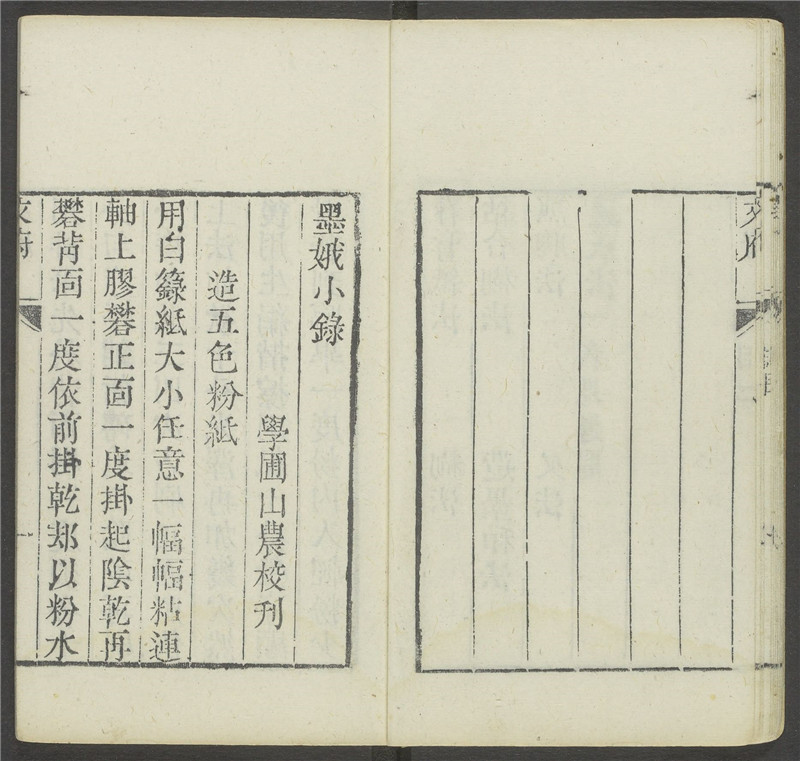 墨娥小錄
學圃山農校刊
造五色粉紙
用白籙紙大小任意一幅幅粘連
軸上膠礬正面一度掛起陰乾再
礬背面一度依前掛乾却以粉水